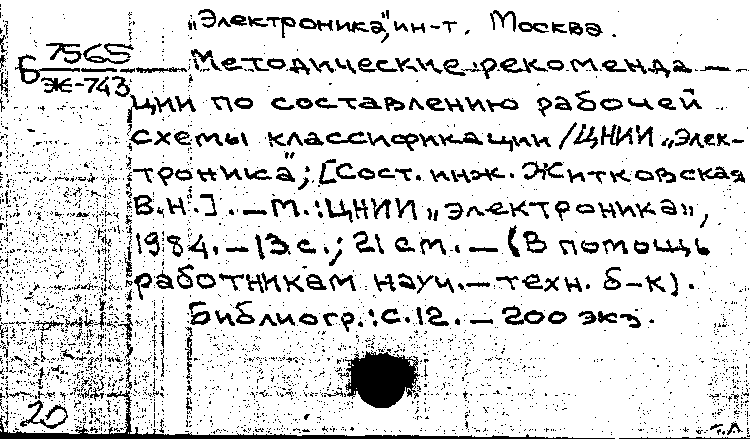 „Электроника", ин-т. Москва.
Б 7565
Ж-743
Методические рекоменда-
ции по составлению рабочей
схемы классификации / ЦНИИ „Элек-
троника"; [Сост. инж. Житковская
В.Н.]. – М.: ЦНИИ „Электроника",
1984. – 13 с.; 21 см. – (В помощь
работникам науч.-техн. б-к).
Библиогр.: с. 12. – 200 экз.
20